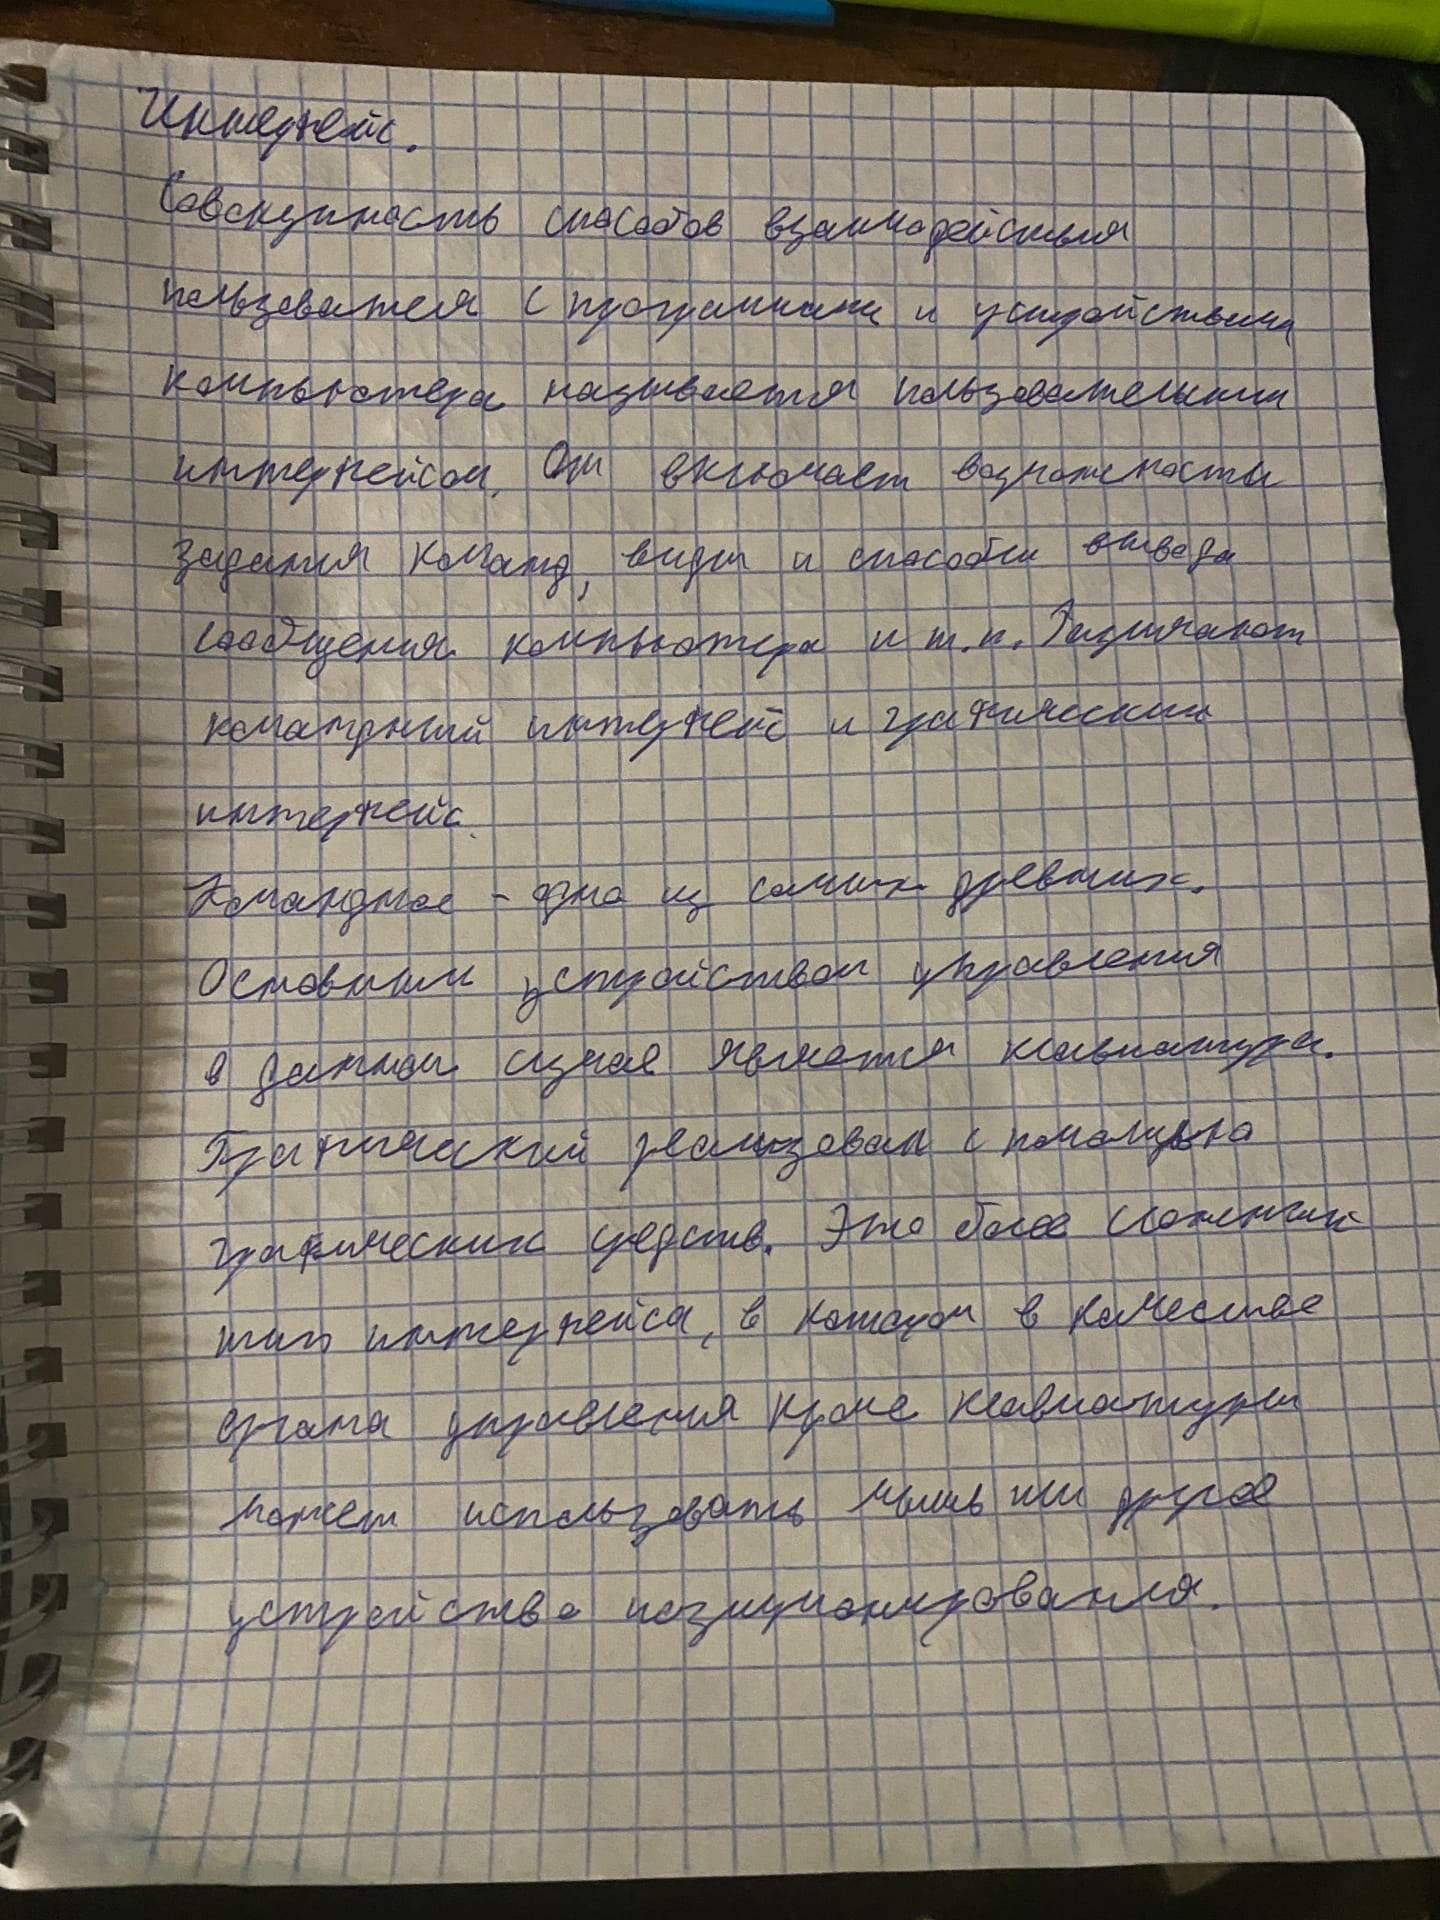 Интерфейс.
Совокупность способов взаимодействия
пользователя с программами и устройствами
компьютера называется пользовательским
интерфейсом. Он включает возможности
задания команд, виды и способы вывода
сообщения компьютера и т.п. Различают
командный интерфейс и графический
интерфейс.
Командное - одно из самых древних.
Основным устройством управления
в данном случае является клавиатура.
Графический реализован с помощью
графических средств. Это более сложный
тип интерфейса, в котором в качестве
органа управления кроме клавиатуры
может использовать мышь или другое
устройство позиционирования.